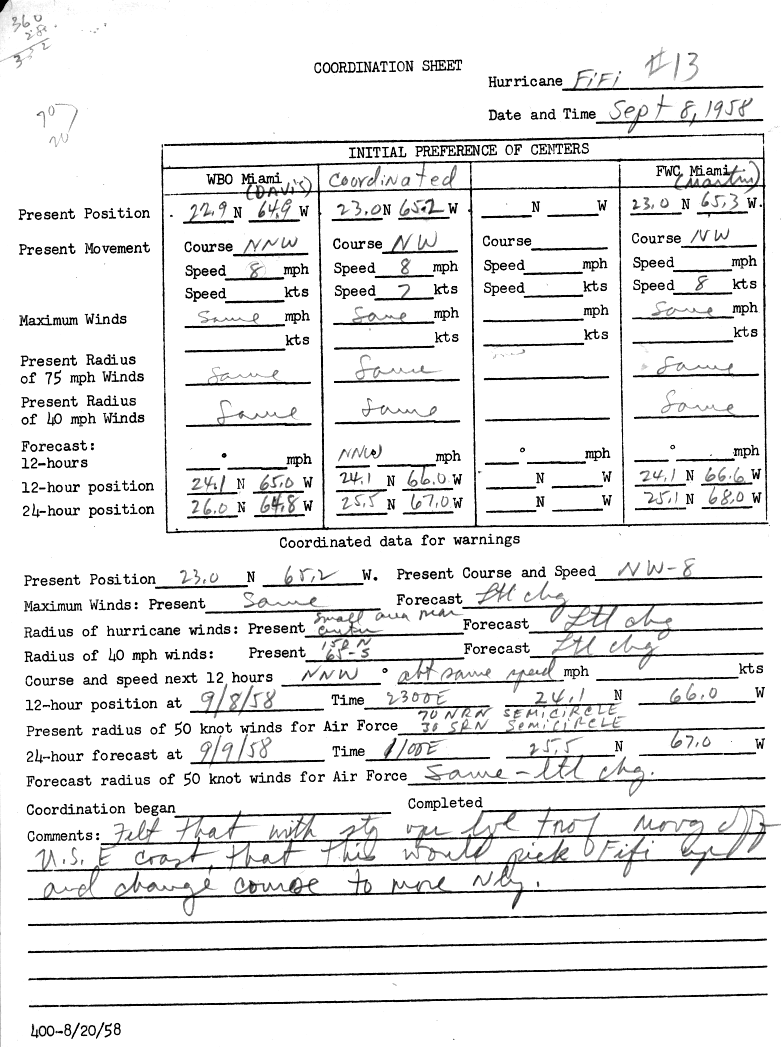 360
28
332
COORDINATION SHEET
Hurricane FiFi #13
Date and Time Sept 8, 1958
70
20
INITIAL PREFERENCE OF CENTERS
WBO Miami (DAVIS) Coordinated FWC, Miami (Martin)
Present Position 22.9 N 64.9 W 23.0 N 65.2 W N W 23.0 N 65.3 W.
Present Movement Course NNW Course NW Course Course NW
Speed 8 mph Speed 8 mph Speed mph Speed mph
Speed kts Speed 7 kts Speed kts Speed 8 kts
Maximum Winds Same mph Same mph mph Same mph
kts kts kts kts
Present Radius
of 75 mph Winds Same Same Same
Present Radius
of 40 mph Winds Same Same Same
Forecast:
12-hours ° mph NNW mph ° mph ° mph
12-hour position 24.1 N 65.0 W 24.1 N 66.0 W N W 24.1 N 66.6 W
24-hour position 26.0 N 64.8 W 25.5 N 67.0 W N W 25.1 N 68.0 W
Coordinated data for warnings
Present Position 23.0 N 65.2 W. Present Course and Speed NW-8
Maximum Winds: Present Same Forecast Ltl chg
Radius of hurricane winds: Present Small area near center Forecast Ltl chg
Radius of 40 mph winds: Present 150 N 65-S Forecast Ltl chg
Course and speed next 12 hours NNW ° abt same speed mph kts
12-hour position at 9/8/58 Time 2300E 24.1 N 66.0 W
Present radius of 50 knot winds for Air Force 70 NRN SEMICIRCLE 30 SRN SEMICIRCLE
24-hour forecast at 9/9/58 Time 1100E 25.5 N 67.0 W
Forecast radius of 50 knot winds for Air Force Same - ltl chg.
Coordination began Completed
Comments: Felt that with stg upr lvl trof movg off
U.S. E coast, that this would pick Fifi up
and change course to more Nly.
400-8/20/58